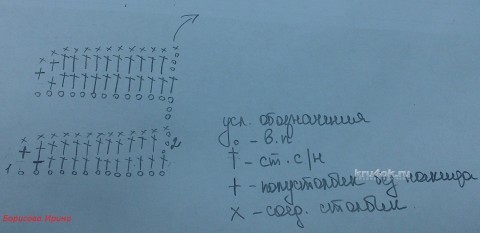 2
1
усл. обозначения
о - в.п
† - ст. с/н
+ - полустолбик без накида
х - соед. столбик
kru4ok.ru
Борисова Ирина